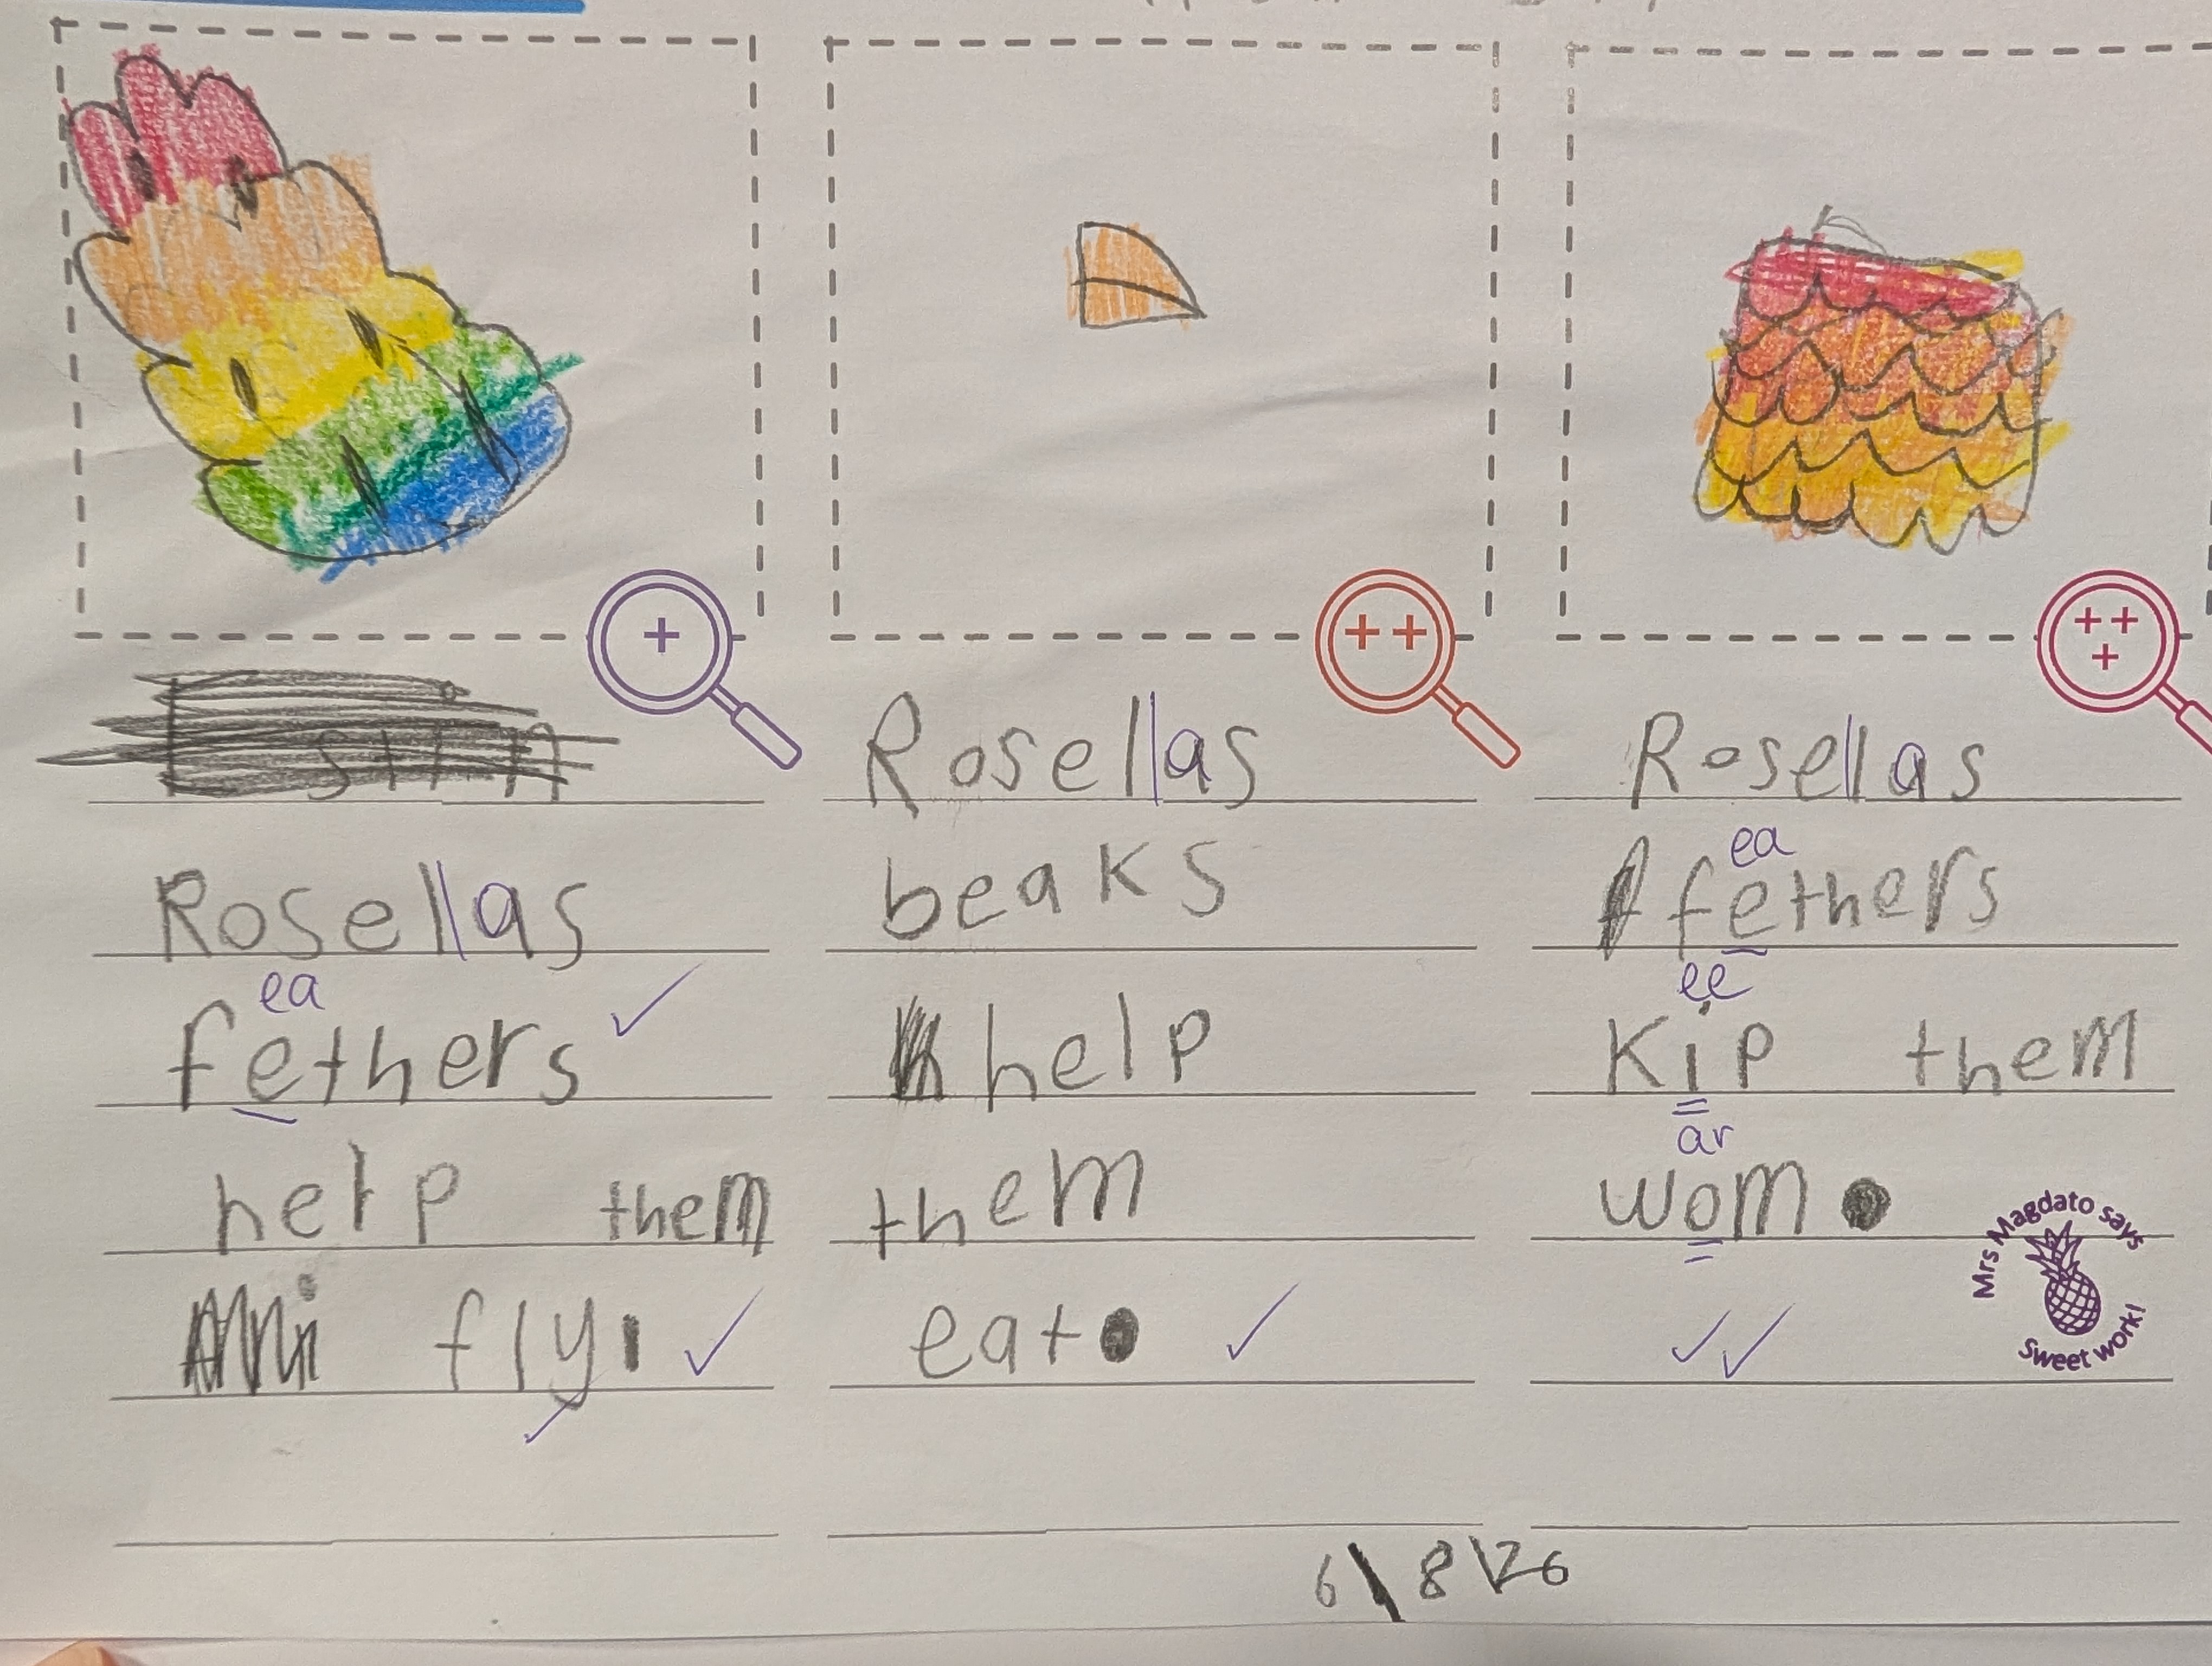 Rosellas
ea
fethers
help them
fly.
Rosellas
beaks
help
them
eat.
Rosellas
ea
fethers
ee
kip them
ar
wom.
Mrs Magdato says
Sweet work!
6\8\26